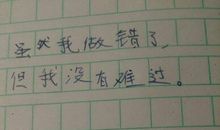 虽然我做错了,
但我没有难过。